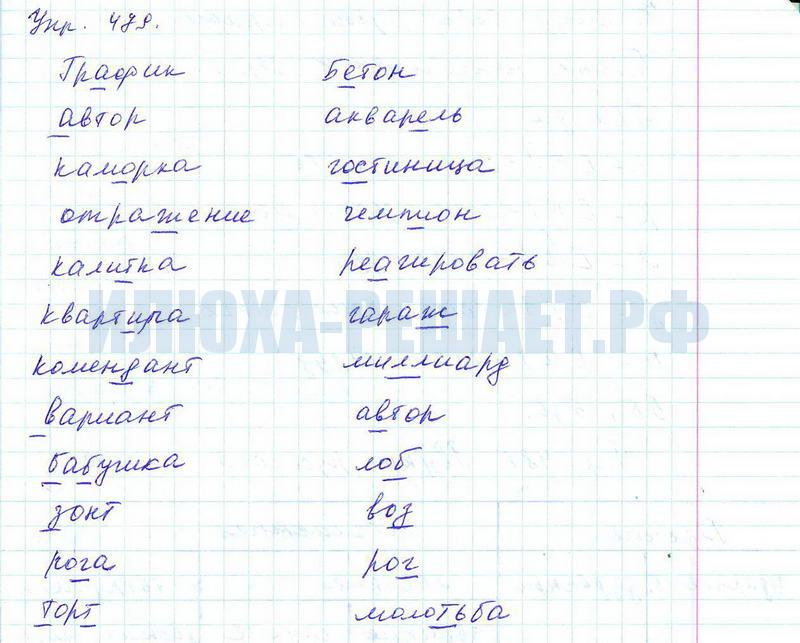 Упр. 479.
График Бетон
автор акварель
каморка гостиница
отражение чемпион
калитка реагировать
квартира гараж
комендант миллиард
вариант автор
бабушка лоб
зонт воз
рога рог
торт молотьба
ИЛЮХА-РЕШАЕТ.РФ